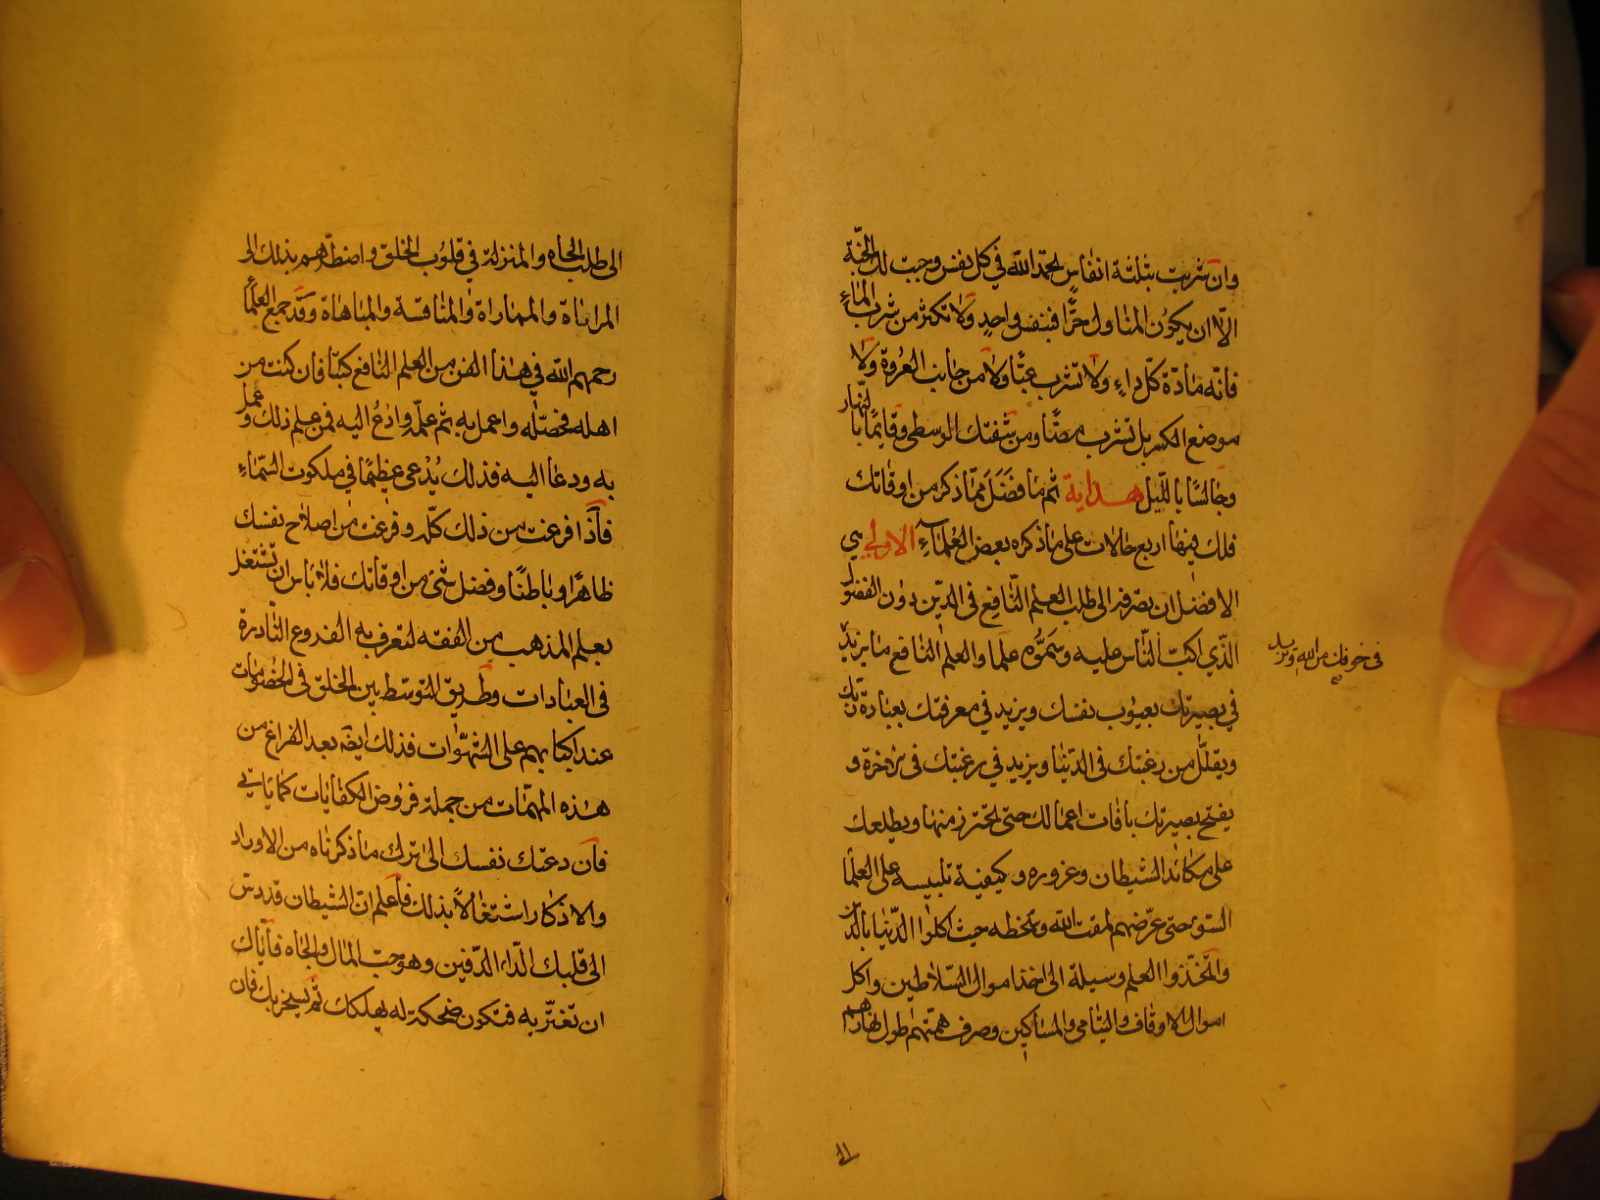 وان شربت بثلثة انفاس بحمد الله في كل نفس وجبت لك الجنة
الا ان يكون المناول حرًّا فبنفس واحدٍ ولا تكثر من شرب الماءِ
فانه مادّة كلّ داءٍ ولا تشرب عبًّا ولا من جانب العروة ولا
موضع الكسر بل تشرب مصًّا ومن شفتك الوسطى وقايمًا بالنهار
وجالسًا بالليل هداية ثم ما فضَلَ ممّا ذكر من اوقاتك
فلك فيها اربع حالات على ما ذكره بعض العُلماءِ الاولى هي
الافضل ان يصرفه الى طلب العلم النّافع في الدّين دون الفضول
الّذي اكبّ النّاس عليه وسمّوه علما والعلم النافع ما يزيد
في خوفك من الله ويزيد صح
في بصيرتك بعيُوب نفسك ويزيد في معرفتك بعبادة ربّك
ويقلّل من رغبتك في الدّنيا ويزيد في رغبتك في الاخرة و
يفتح بصيرتك بافات اعمالك حتى تحترز منها ويطلعك
على مكائد الشيطان وغروره وكيفية تلبيسه على العلما
السّوء حتى عرّضهم لمقت الله وسخطه حيث اكلوا الدّنيا بالدّين
واتّخذوا العلم وسيلة الى اخذ اموال السّلاطين واكل
اموال الاوقاف واليتامى والمساكين وصرف همّتهم طول نهارهم
١١
الى طلب الجاه والمنزلة في قلوُب الخلق واضطرّهم بذلك الى
المراياة والمماراة والمنافسة والمباهاة وقد جمع العلمآ
رحمهم الله في هذا الفن من العلم النّافع كتبًا فان كنت من
اهله فحصّله واعمل به ثم علّمه وادعُ اليه فمن علم ذلك وعمل
به ودعا اليه فذلك يُدْعى عظيمًا في ملكوت السّماءِ
فاذا فرغت من ذلك كلّه وفرغت من اصلاح نفسك
ظاهرًا وباطنًا وفضل شئ من اوقاتك فلا باس ان تشتغل
بعلم المذهب من الفقه لتعرف به الفروع النّادرة
في العبادات وطريق التوسّط بين الخلق في الخصومات
عند اكبابهم على الشهوات فذلك ايضًا بعد الفراغ من
هذه المهمّات من جملة فروض الكفايات كما ياتي
فان دعتك نفسك الى ترك ما ذكرناه من الاوراد
والاذكار اشتغالاً بذلك فاعلم انّ الشيطان قد دسّ
الى قلبك الدّاء الدّفين وهو حبّ المال والجاه فايّاك
ان تغترّ به فتكون ضحكة له يهلكك ثمّ يسخر بك فان